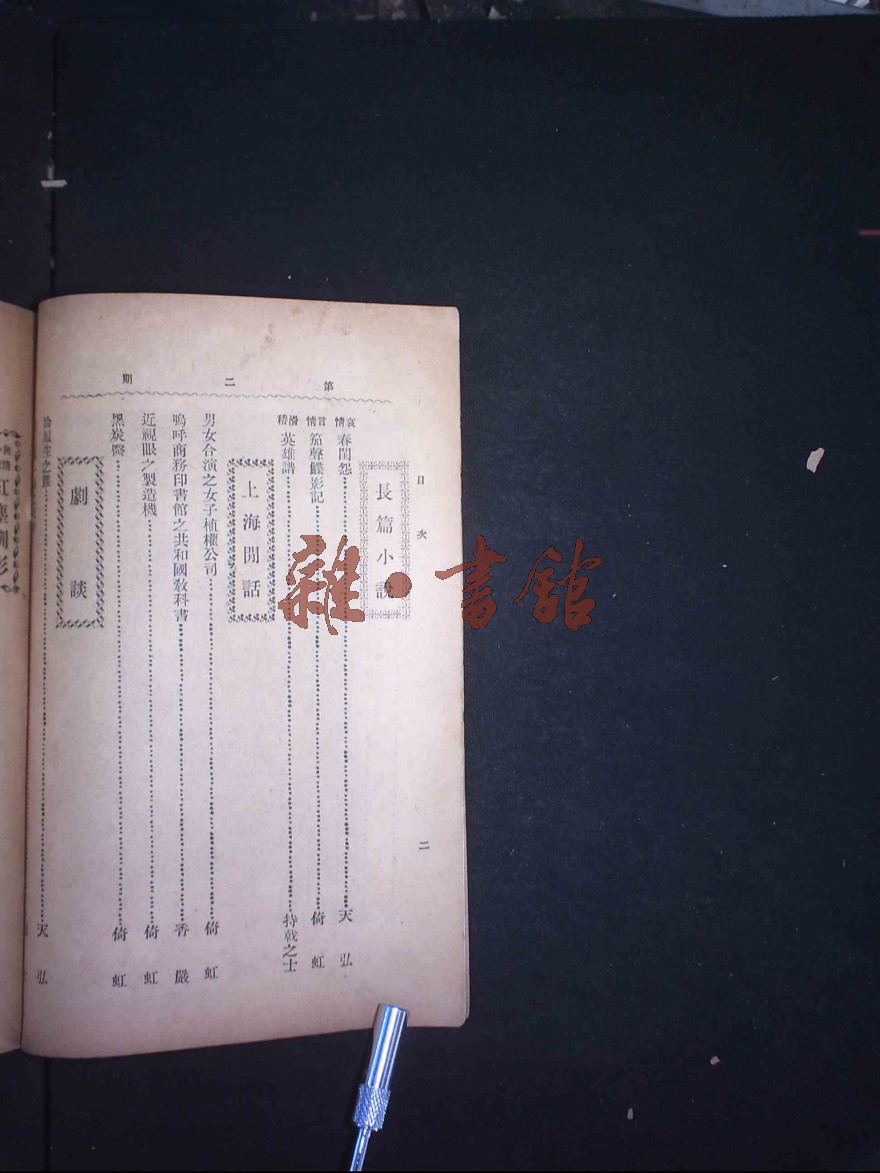 第二期
目次
二
長篇小說
哀情 春閨怨 天弘
言情 笳聲蝶影記 倚虹
滑稽 英雄譜 持戟之士
上海閒話
男女合演之女子植權公司 倚虹
嗚呼商務印書館之共和國敎科書 香嚴
近視眼之製造機 倚虹
黑炭醫 倚虹
劇談
天弘
雜·書館